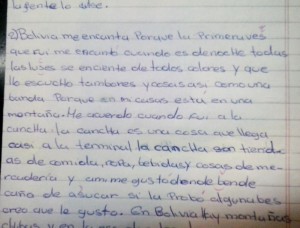 la gente lo sabe.
2) Bolivia me encanta Porque la Primera ves
que fui me encantó cuando es de noche todas
las luses se enciente de todos colores y que
He escucho tambores y cosas así como una
banda Porque en mi casas esta en una
montaña. He acuerdo cuando fui a la
cancha la cancha es una cosa que llega
casi a la terminal la cancha son tiend
as de comida, ropa, bebidas y cosas de me
rcadería y ami me gustó dende bende
caña de asucar si la Probo algunabes
creo que le gusto. En Bolivia Hay montañas
y en